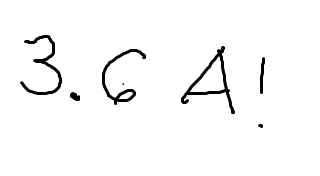 3.6 A!